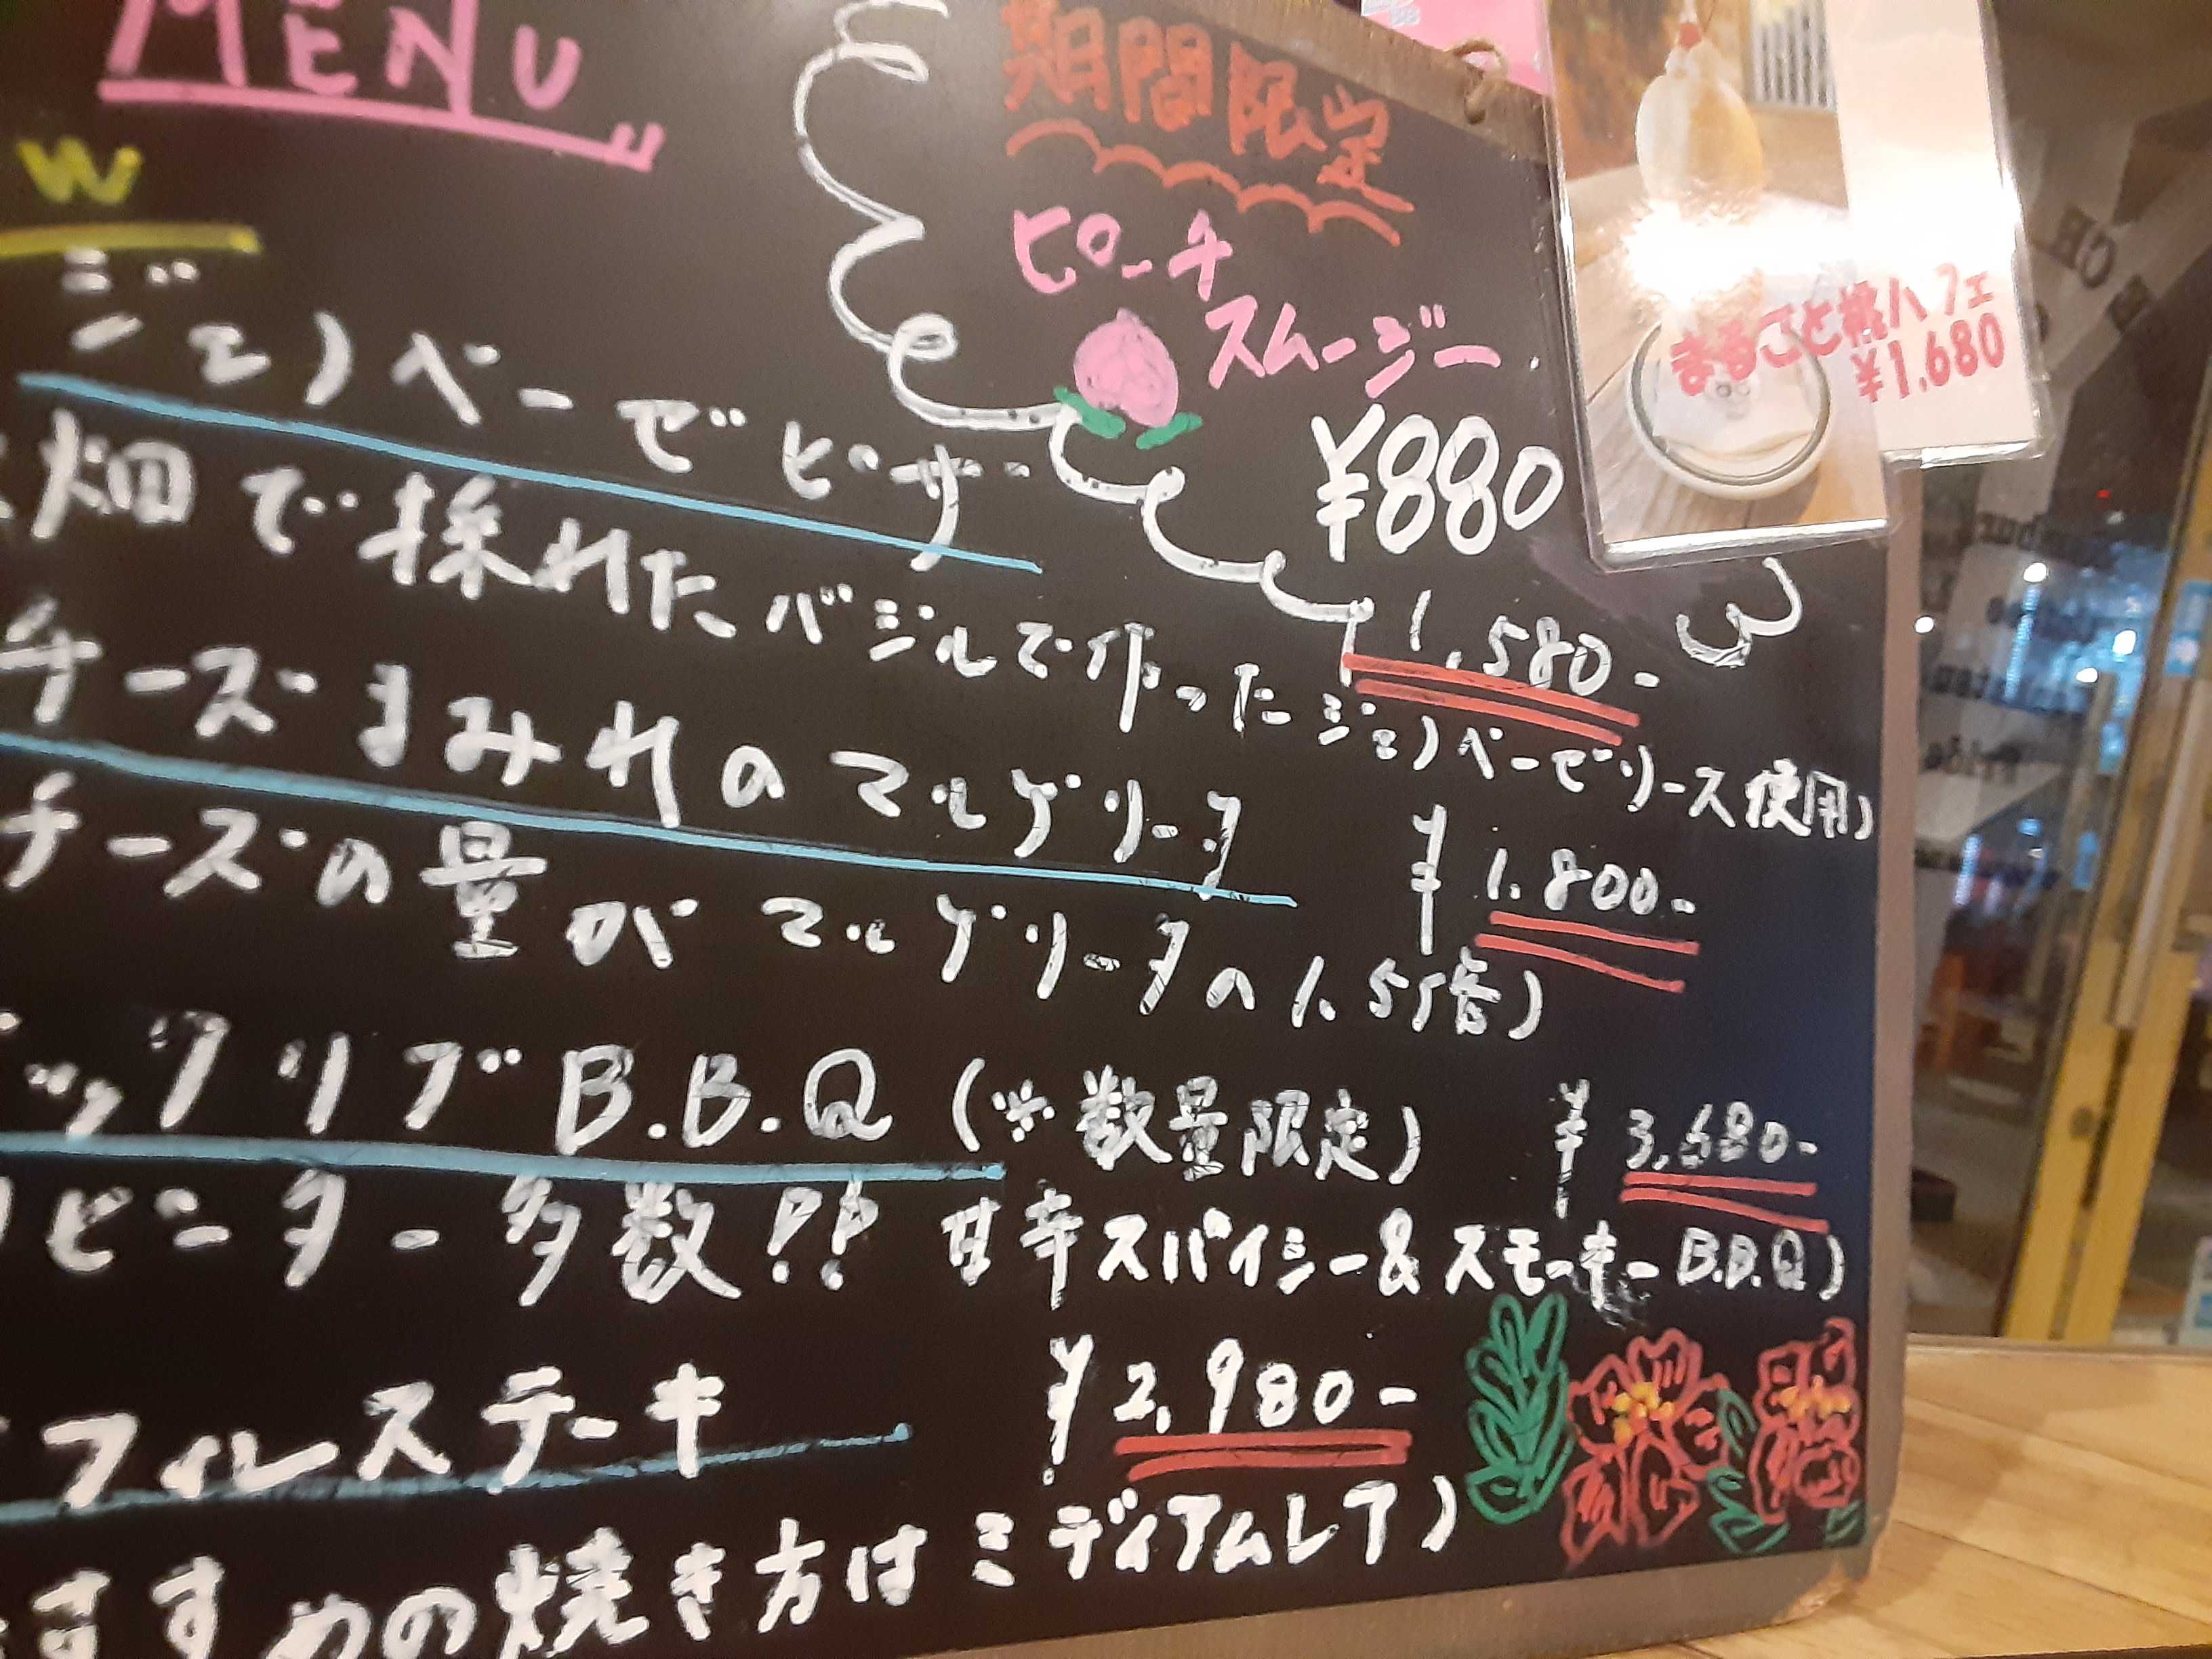 MENU
期間限定
ピーチ
スムージー
¥880
まるごと桃パフェ
¥1,680
W
ジェノベーゼピザ
1,580-
畑で採れたバジルで作ったジェノベーゼソース使用)
チーズまみれのマルゲリータ ¥1,800-
チーズの量がマルゲリータの1.5倍)
ックリブB.B.Q (※数量限定) ¥3,680-
リピーター多数!! 甘辛スパイシー&スモーキーB.B.Q)
フィレステーキ ¥2,980-
すすめの焼き方はミディアムレア)